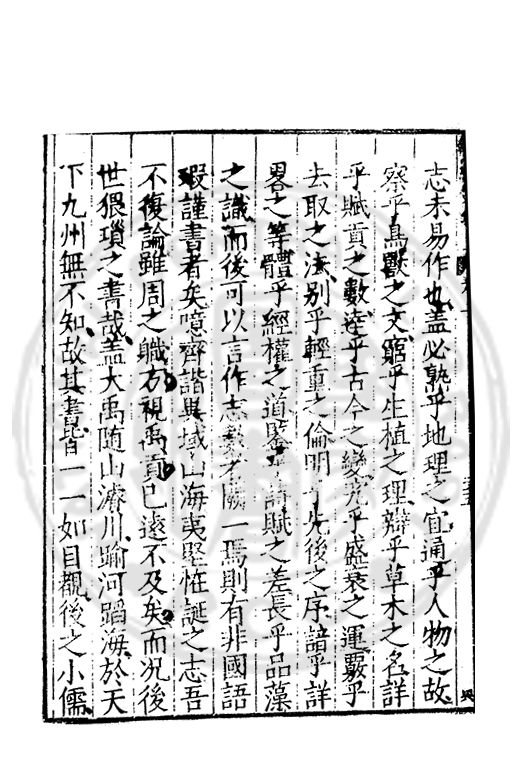 志未易作也蓋必熟乎地理之宜通乎人物之故
察乎鳥獸之文窮乎生植之理辯乎草木之名詳
乎賦貢之數達乎古今之變究乎盛衰之運覈乎
去取之法別乎輕重之倫明乎先後之序諳乎詳
畧之等體乎經權之道鑒乎詩賦之差長乎品藻
之識而後可以言作志數者闕一焉則有非國語
瑕謹書者矣噫齊諧異域山海夷堅恠誕之志吾
不復論雖周之職方視禹貢已遠不及矣而况後
世猥瑣之書哉蓋大禹隨山濬川踰河蹈海於天
下九州無不知故其書皆一一如目覩後之小儒